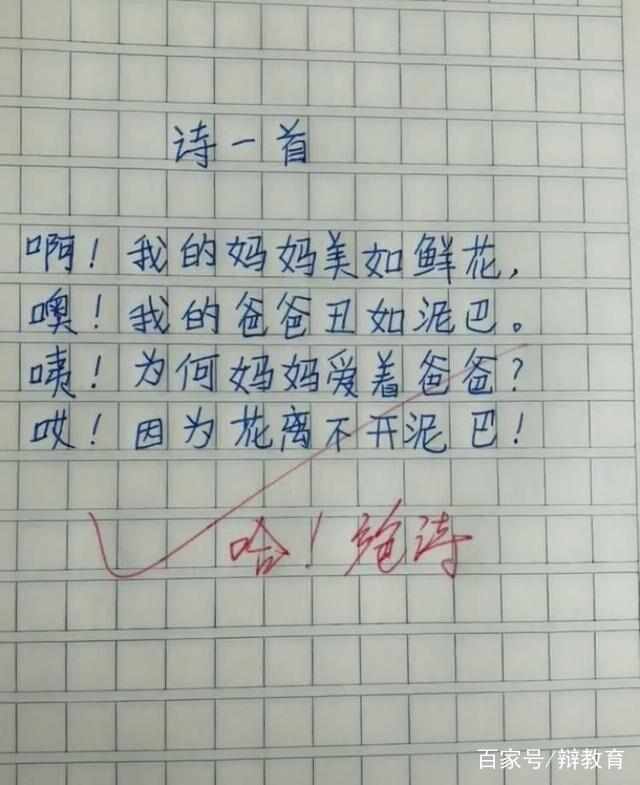 诗一首
啊！我的妈妈美如鲜花，
噢！我的爸爸丑如泥巴。
咦！为何妈妈爱着爸爸？
哎！因为花离不开泥巴！
哈！绝诗
百家号/辩教育